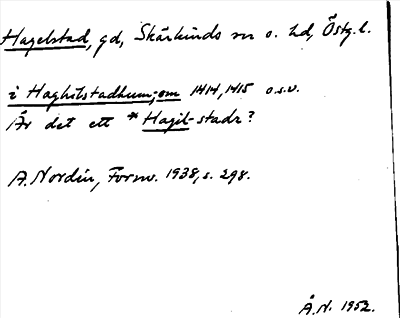 Hagelstad, gd, Skärkinds sn o. hd, Östg. l.
i Haghilstadhum, -om 1414, 1415 o.s.v.
Är det ett *Hagil-stadr?
A. Nordin, Fornv. 1938, s. 298.
Å.N. 1952.